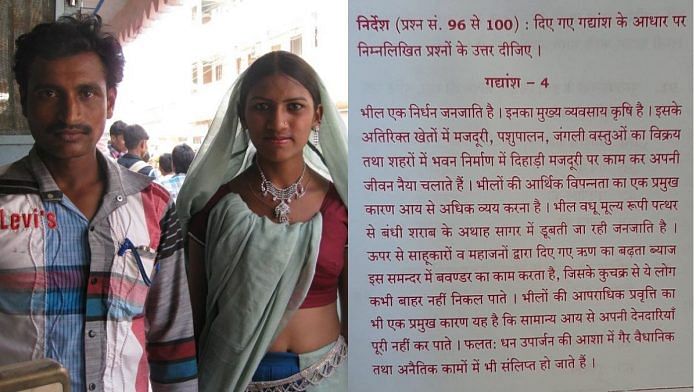 Levi's
निर्देश (प्रश्न सं. 96 से 100) : दिए गए गद्यांश के आधार पर
निम्नलिखित प्रश्नों के उत्तर दीजिए ।
गद्यांश – 4
भील एक निर्धन जनजाति है । इनका मुख्य व्यवसाय कृषि है । इसके
अतिरिक्त खेतों में मजदूरी, पशुपालन, जंगली वस्तुओं का विक्रय
तथा शहरों में भवन निर्माण में दिहाड़ी मजदूरी पर काम कर अपनी
जीवन नैया चलाते हैं । भीलों की आर्थिक विपन्नता का एक प्रमुख
कारण आय से अधिक व्यय करना है । भील वधू मूल्य रूपी पत्थर
से बंधी शराब के अथाह सागर में डूबती जा रही जनजाति है ।
ऊपर से साहूकारों व महाजनों द्वारा दिए गए ऋण का बढ़ता ब्याज
इस समन्दर में बवण्डर का काम करता है, जिसके कुचक्र से ये लोग
कभी बाहर नहीं निकल पाते । भीलों की आपराधिक प्रवृत्ति का
भी एक प्रमुख कारण यह है कि सामान्य आय से अपनी देनदारियाँ
पूरी नहीं कर पाते । फलतः धन उपार्जन की आशा में गैर वैधानिक
तथा अनैतिक कामों में भी संलिप्त हो जाते हैं ।